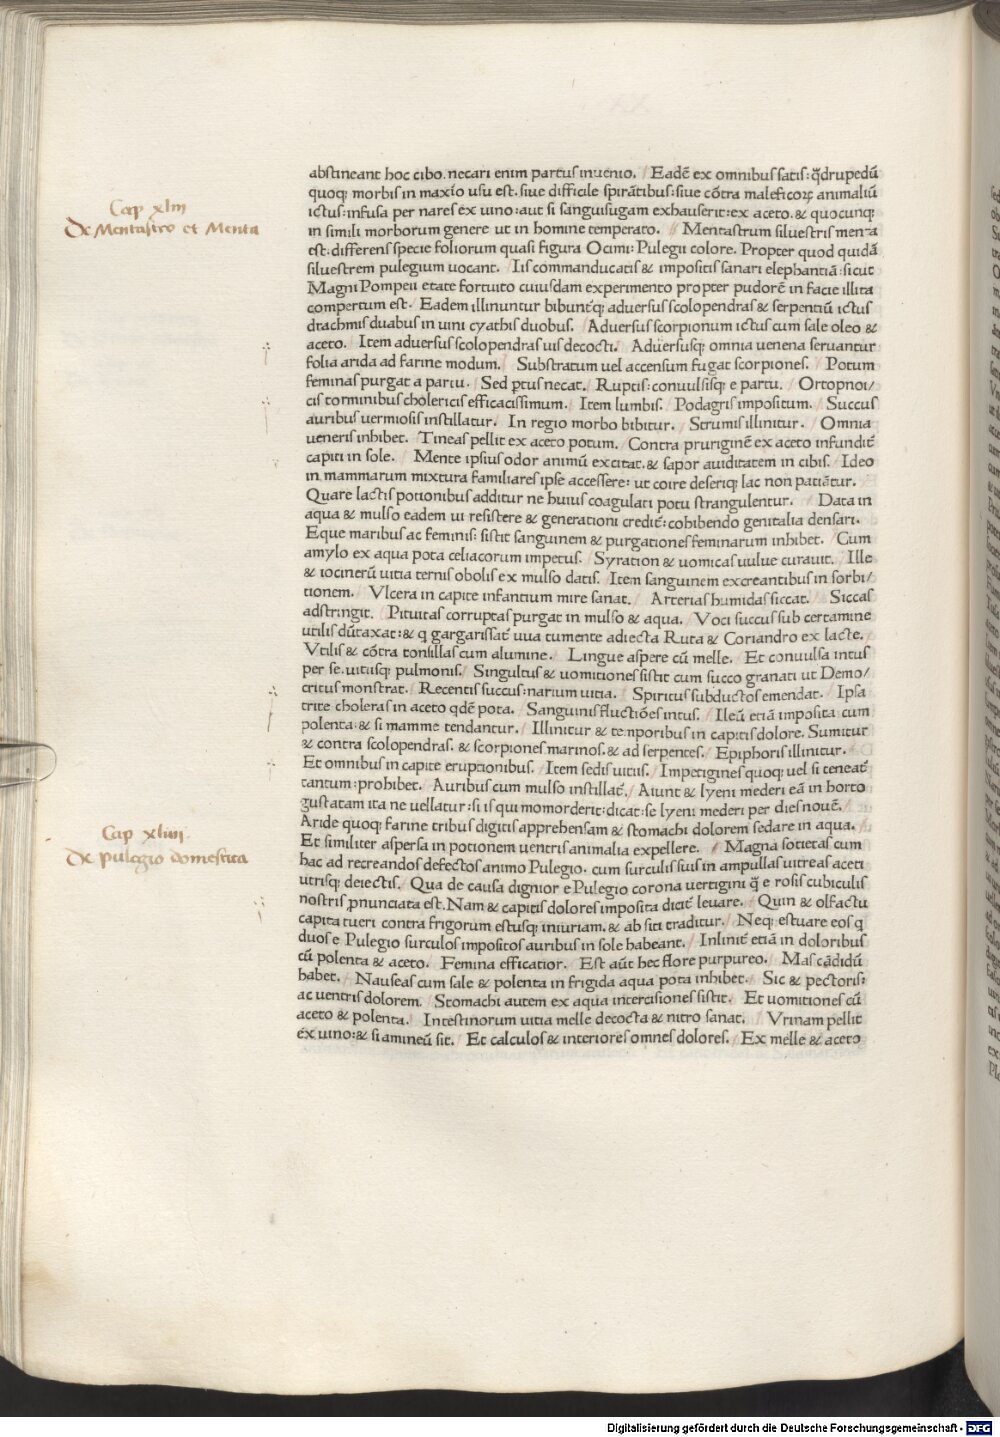 Cap xliii
De Mentastro et Menta
abstineant hoc cibo. necari enim partus inuenio. / Eadē ex omnibus satis: q̄drupedū
quoq; morbis in maxīo usu est. siue difficile spirātibus: siue cōtra maleficoꝝ animaliū
ictus: infusa per nares ex uino: aut si sanguisugam exhauserit: ex aceto. & quocunq;
in simili morborum genere ut in homine temperato. // Mentastrum siluestris menta
est: differens specie foliorum quasi figura Ocimi: Pulegii colore. Propter quod quidā
siluestrem pulegium uocant. / Iis commanducatis & impositis sanari elephantiā: sicut
Magni Pompeii etate fortuito cuiusdam experimento propter pudorē in facie illita
compertum est. / Eadem illinuntur bibunt̄q; aduersus scolopendras & serpentiū ictus
drachmis duabus in uini cyathis duobus. / Aduersus scorpionum ictus cum sale oleo &
aceto. / Item aduersus scolopendras uis decocti. / Aduersusq; omnia uenena seruantur
folia arida ad farine modum. / Substratum uel accensum fugat scorpiones. / Potum
feminas purgat a partu. / Sed ꝑtus necat. / Ruptis: conuulsisq; e partu. / Ortopnoi/
cis torminibus cholericis efficacissimum. / Item lumbis. / Podagris impositum. / Succus
auribus uermiosis instillatur. / In regio morbo bibitur. / Strumis illinitur. / Omnia
ueneris inhibet. / Tineas pellit ex aceto potum. / Contra pruriginē ex aceto infundit̄
capiti in sole. / Mente ipsius odor animū excitat. & sapor auiditatem in cibis. / Ideo
in mammarum mixtura familiares ipse accessere: ut coire deseriq; lac non patiātur. /
Quare lactis potionibus additur ne huius coagulati potu strangulentur. / Data in
aqua & mulso eadem ui resistere & generationi credit̄: cohibendo genitalia densari.
Eque maribus ac feminis: sistit sanguinem & purgationes feminarum inhibet. / Cum
amylo ex aqua pota celiacorum impetus. / Syration & uomicas uulue curauit. / Ille
& iocinerū uitia ternis obolis ex mulso datis. / Item sanguinem excreantibus in sorbi/
tionem. / Vlcera in capite infantium mire sanat. / Arterias humidas siccat. / Siccas
adstringit. / Pituitas corruptas purgat in mulso & aqua. / Voci succus sub certamine
utilis dūtaxat: & q gargarissat̄ uua tumente adiecta Ruta & Coriandro ex lacte. /
Vtilis & cōtra tonsillas cum alumine. / Lingue aspere cū melle. / Et conuulsa intus
per se. uitiisq; pulmonis. / Singultus & uomitiones sistit cum succo granati ut Demo/
critus monstrat. / Recentis succus: narium uitia. / Spiritus subductos emendat. / Ipsa
trite choleras in aceto qdē pota. / Sanguinis fluctiōes intus. / Ileū etiā imposita cum
polenta: & si mamme tendantur. / Illinitur & temporibus in capitis dolore. Sumitur
& contra scolopendras. & scorpiones marinos. & ad serpentes. / Epiphoris illinitur.
Et omnibus in capite eruptionibus. / Item sedis uitiis. / Impetigines quoq; uel si teneat̄
tantum: prohibet. / Auribus cum mulso instillat̄. / Aiunt & lyeni mederi eā in horto
gustatam ita ne uellatur: si is qui momorderit: dicat: se lyeni mederi per dies nouē. /
Aride quoq; farine tribus digitis apprehensam & stomachi dolorem sedare in aqua. /
Et similiter aspersa in potionem uentris animalia expellere. / Magna societas cum
hac ad recreandos defectos animo Pulegio. cum surculis suis in ampullas uitreas aceti
utrisq; deiectis. / Qua de causa dignior e Pulegio corona uertigini q̄ e rosis cubiculis
nostris ꝓnunciata est. Nam & capitis dolores imposita dicit̄ leuare. / Quin & olfactu
capita tueri contra frigorum estusq; iniuriam. & ab siti traditur. / Neq; estuare eos q
duos e Pulegio surculos impositos auribus in sole habeant. / Inlinit̄ etiā in doloribus
cū polenta & aceto. / Femina efficatior. / Est aūt hec flore purpureo. / Mas cādidū
habet. / Nauseas cum sale & polenta in frigida aqua pota inhibet. / Sic & pectoris:
ac uentris dolorem. / Stomachi autem ex aqua intercisiones sistit. / Et uomitiones cū
aceto & polenta. / Intestinorum uitia melle decocta & nitro sanat. / Vrinam pellit
ex uino: & si amineū sit. / Et calculos & interiores omnes dolores. / Ex melle & aceto
Cap xliiii
De pulegio domestita
Digitalisierung gefördert durch die Deutsche Forschungsgemeinschaft - DFG